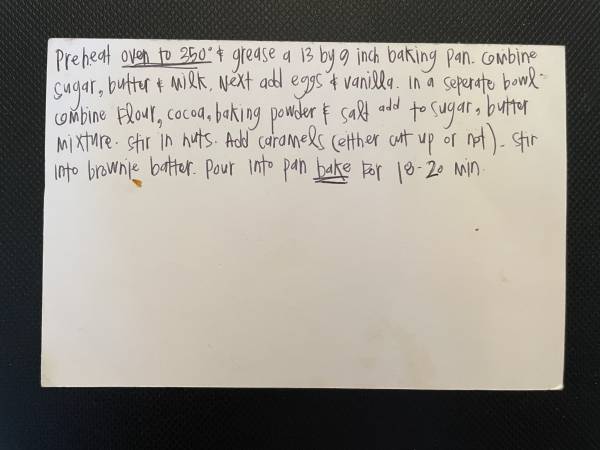 Preheat oven to 350° & grease a 13 by 9 inch baking pan. Combine
sugar, butter & milk, Next add eggs & vanilla. In a seperate bowl
combine Flour, cocoa, baking powder & salt add to sugar, butter
mixture. Stir in nuts. Add caramels (either cut up or not). Stir
into brownie batter. Pour into pan bake For 18-20 min.